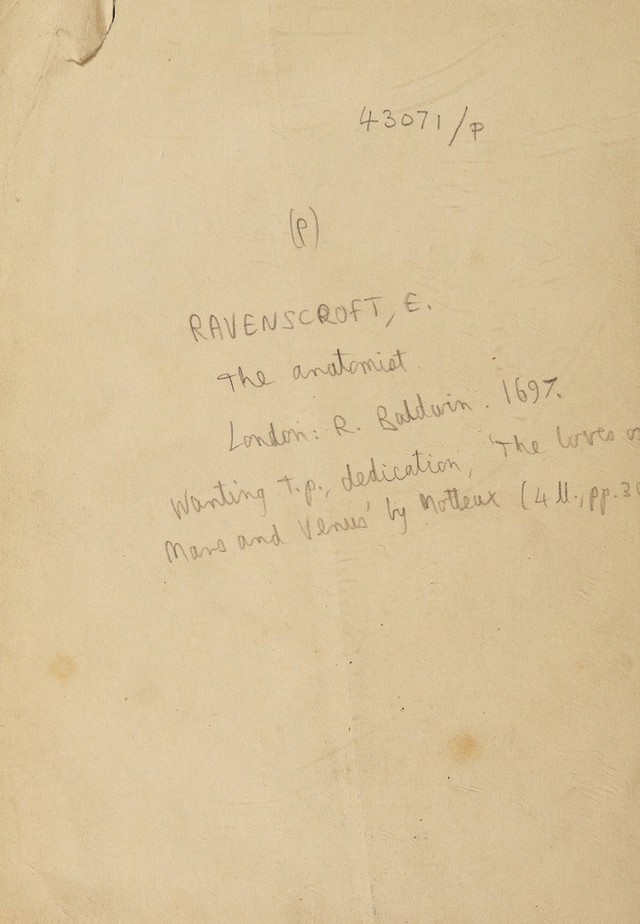 43071/P
(P)
RAVENSCROFT, E.
The anatomist.
London: R. Baldwin. 1697.
Wanting T.p., dedication, 'The Loves
Mars and Venus' by Motteux (4 ll., pp.